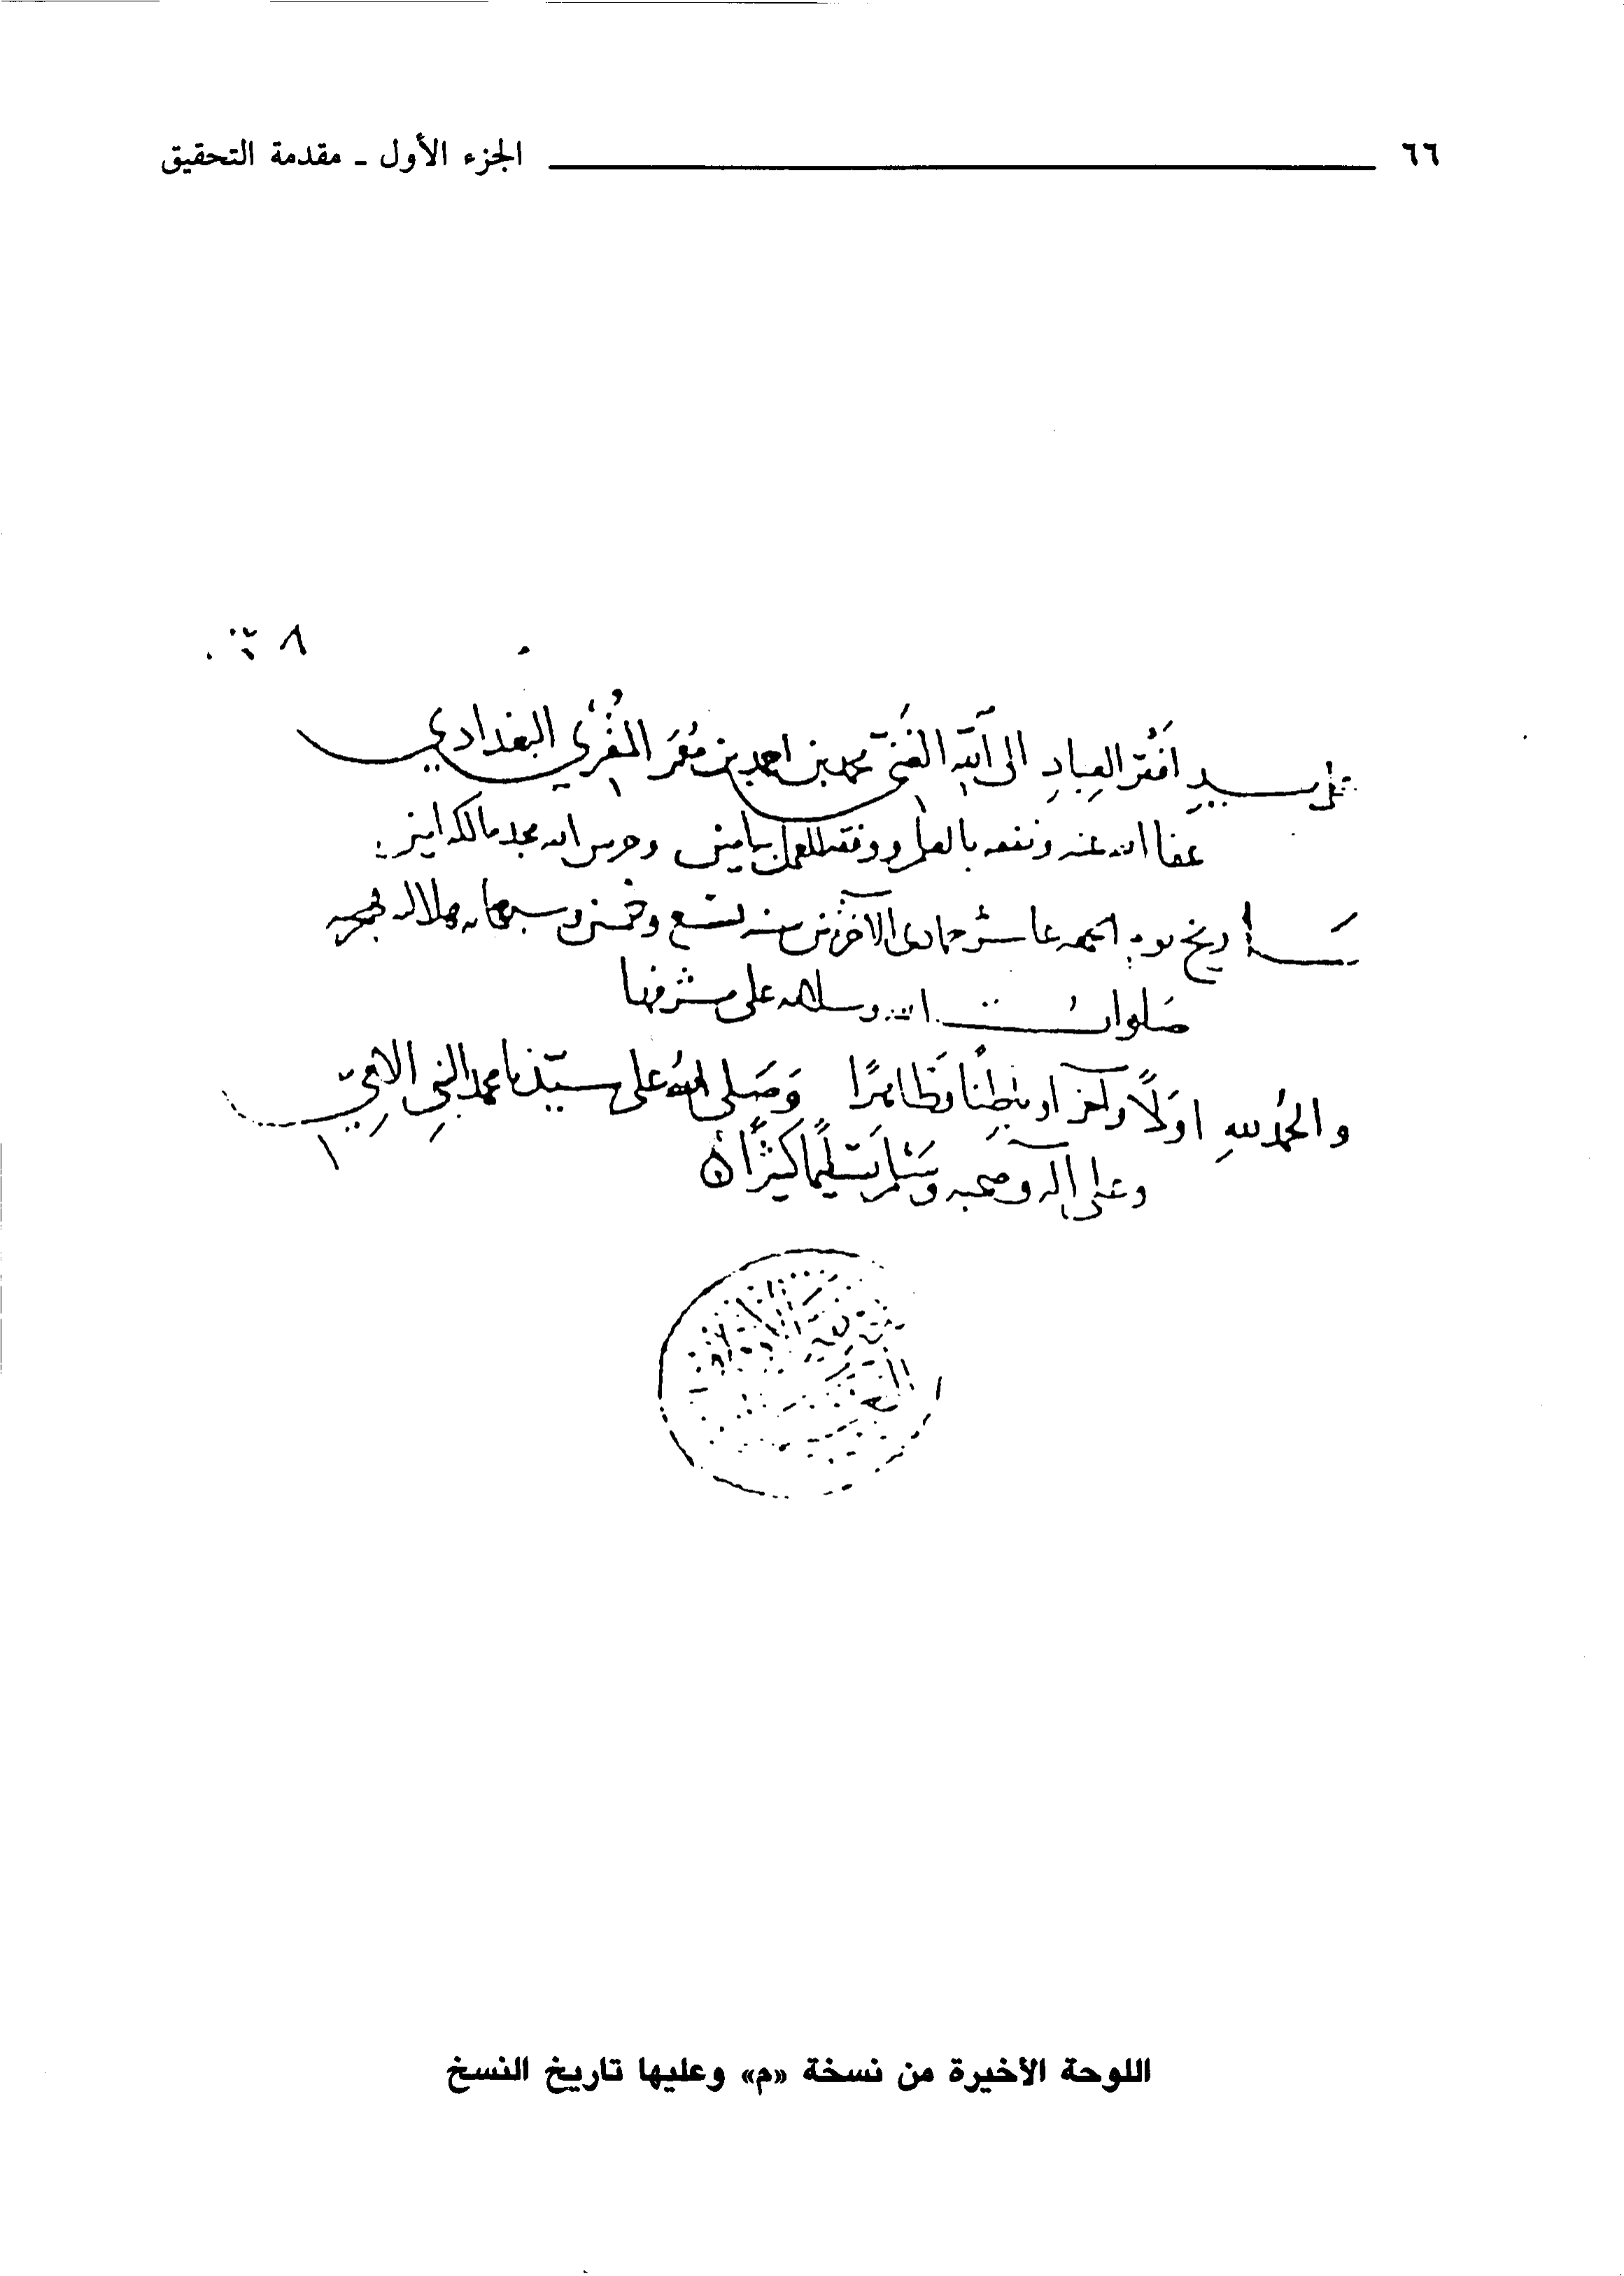 ٦٦ الجزء الأول ـ مقدمة التحقيق
على يد افقر العباد الى الله الغني محمد بن احمد بن معمر المقري البغدادي
عفا الله عنه ونفعه بالعلم ووفقه للعمل بيامين وحرس الله مجد مالكه امين
بتاريخ يوم الجمعه عاشر جمادى الاخرة من سنه تسع وخمسين وسبعمايه هلاليه هجريه
صلوات الله وسلامه على مشرفها
والحمد لله اولًا وآخرًا وباطنًا وظاهرًا وَصَلى اللهُ على سيّدنا محمد النبي الامي
وعلى آله وصحبه وسَلم تسليمًا كثيرًا
اللوحة الأخيرة من نسخة «م» وعليها تاريخ النسخ